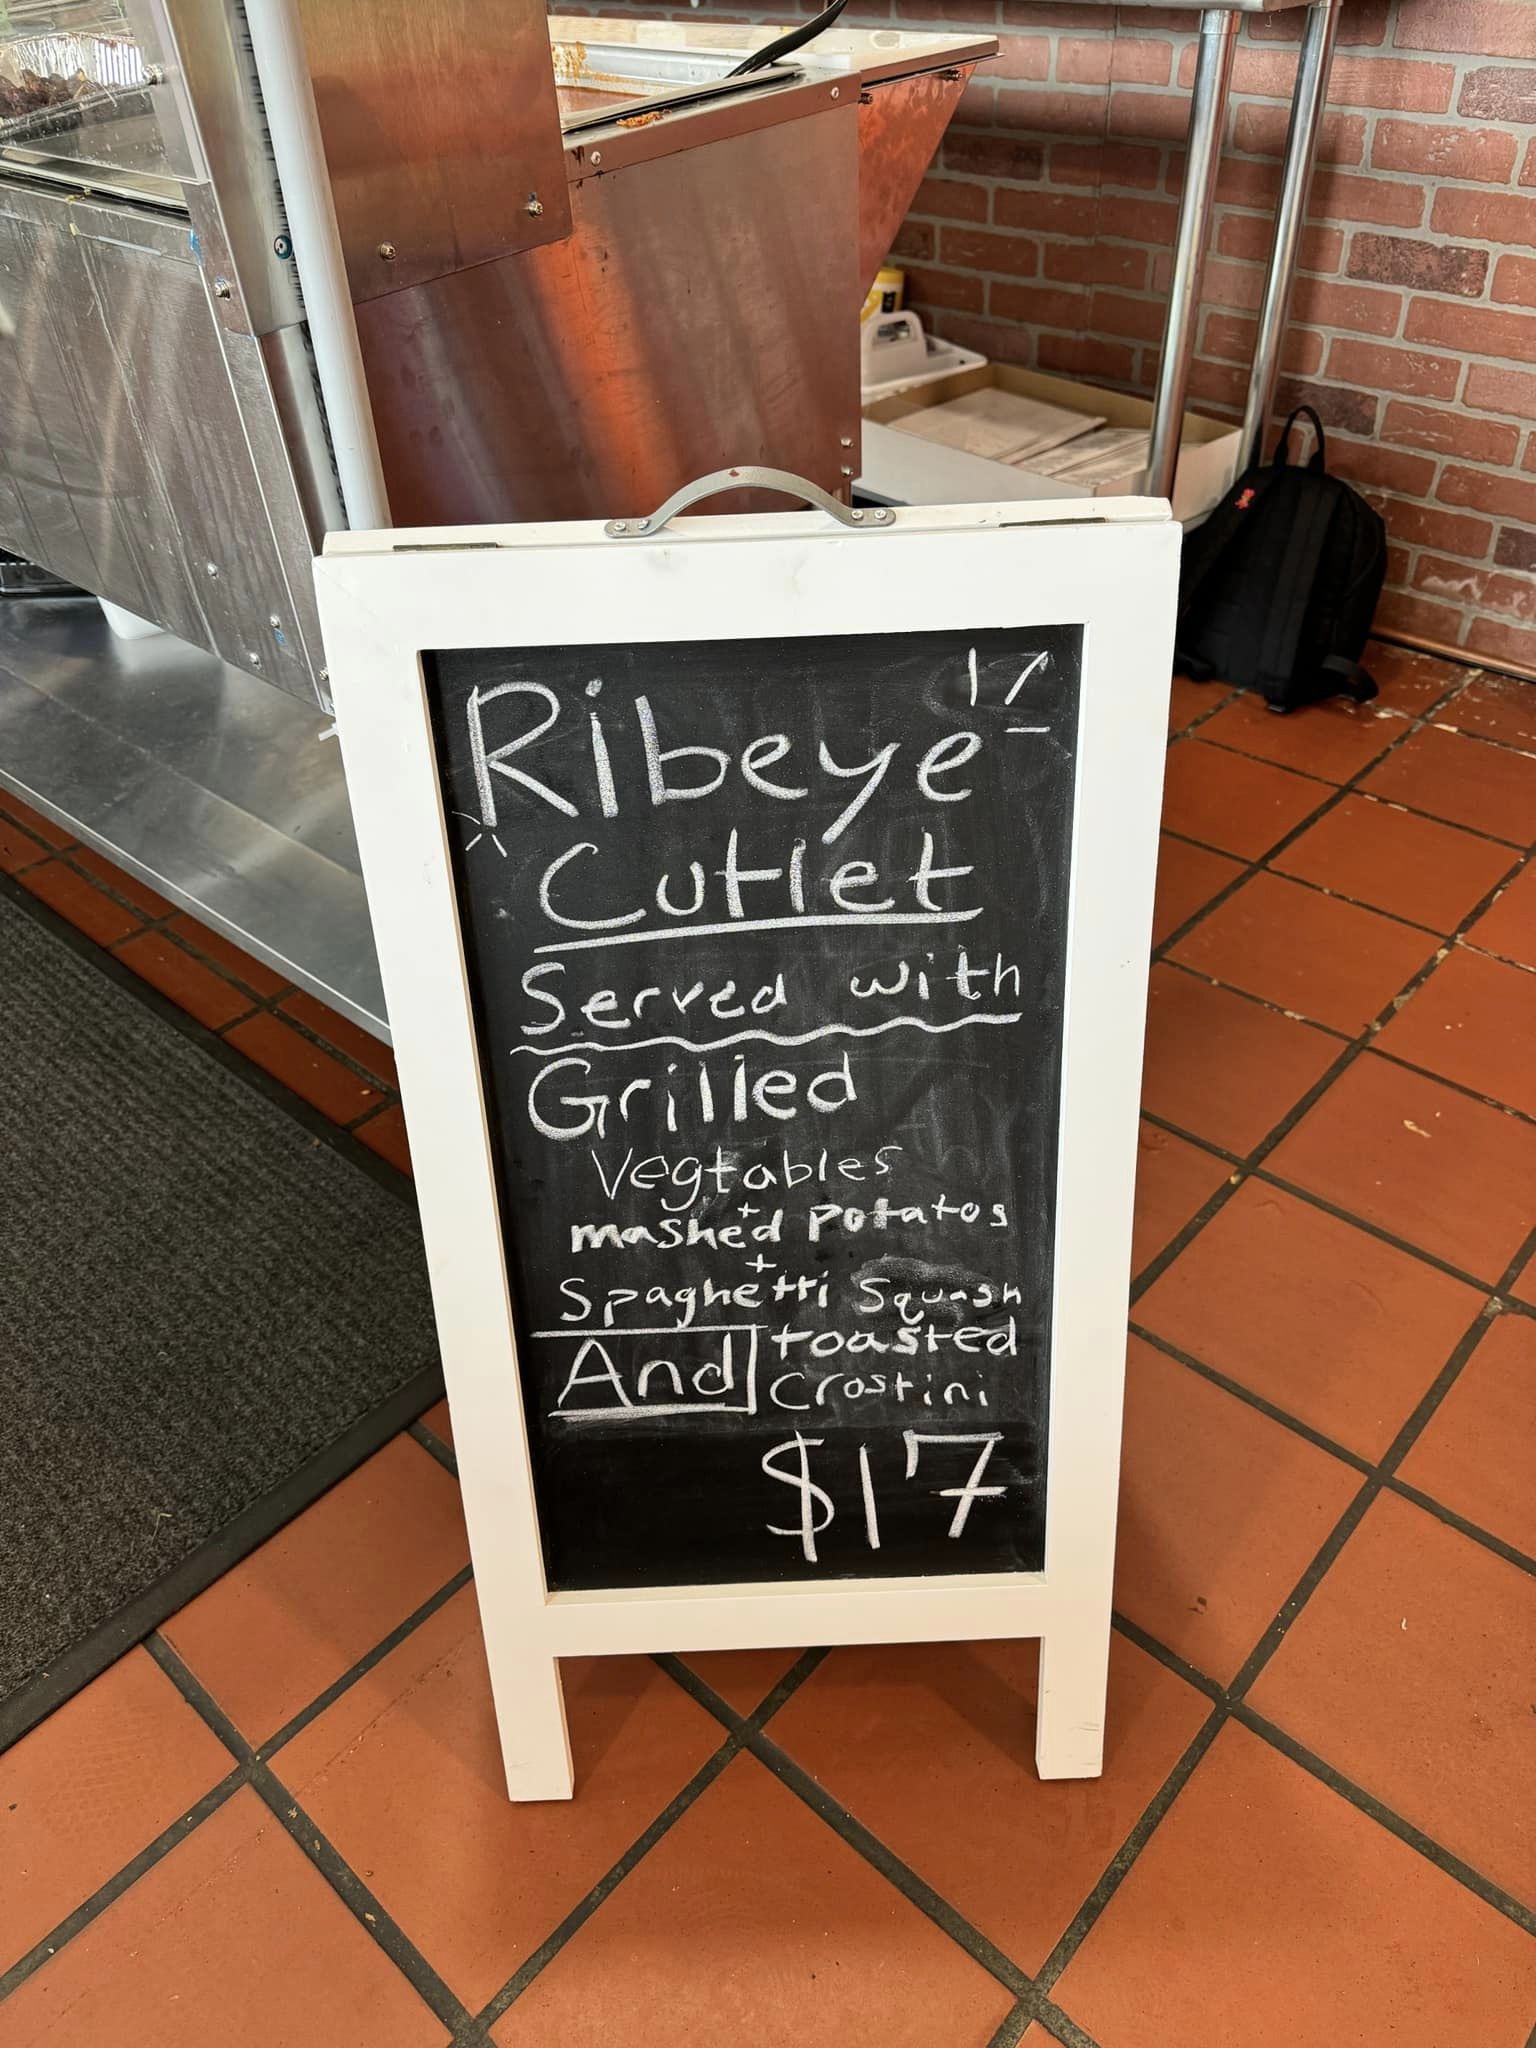 Ribeye
Cutlet
Served with
Grilled
Vegtables
+
mashed potatos
+
Spaghetti Squash
And toasted
Crostini
$17